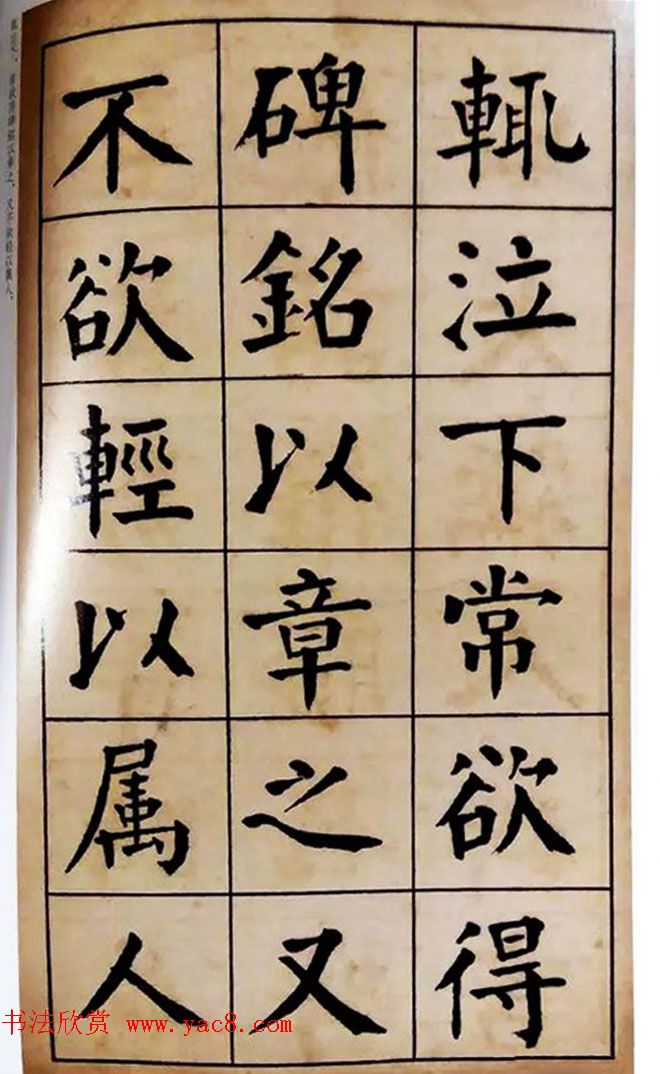 輒泣下常欲得
碑銘以章之又
不欲輕以属人
書法欣赏 www.yac8.com